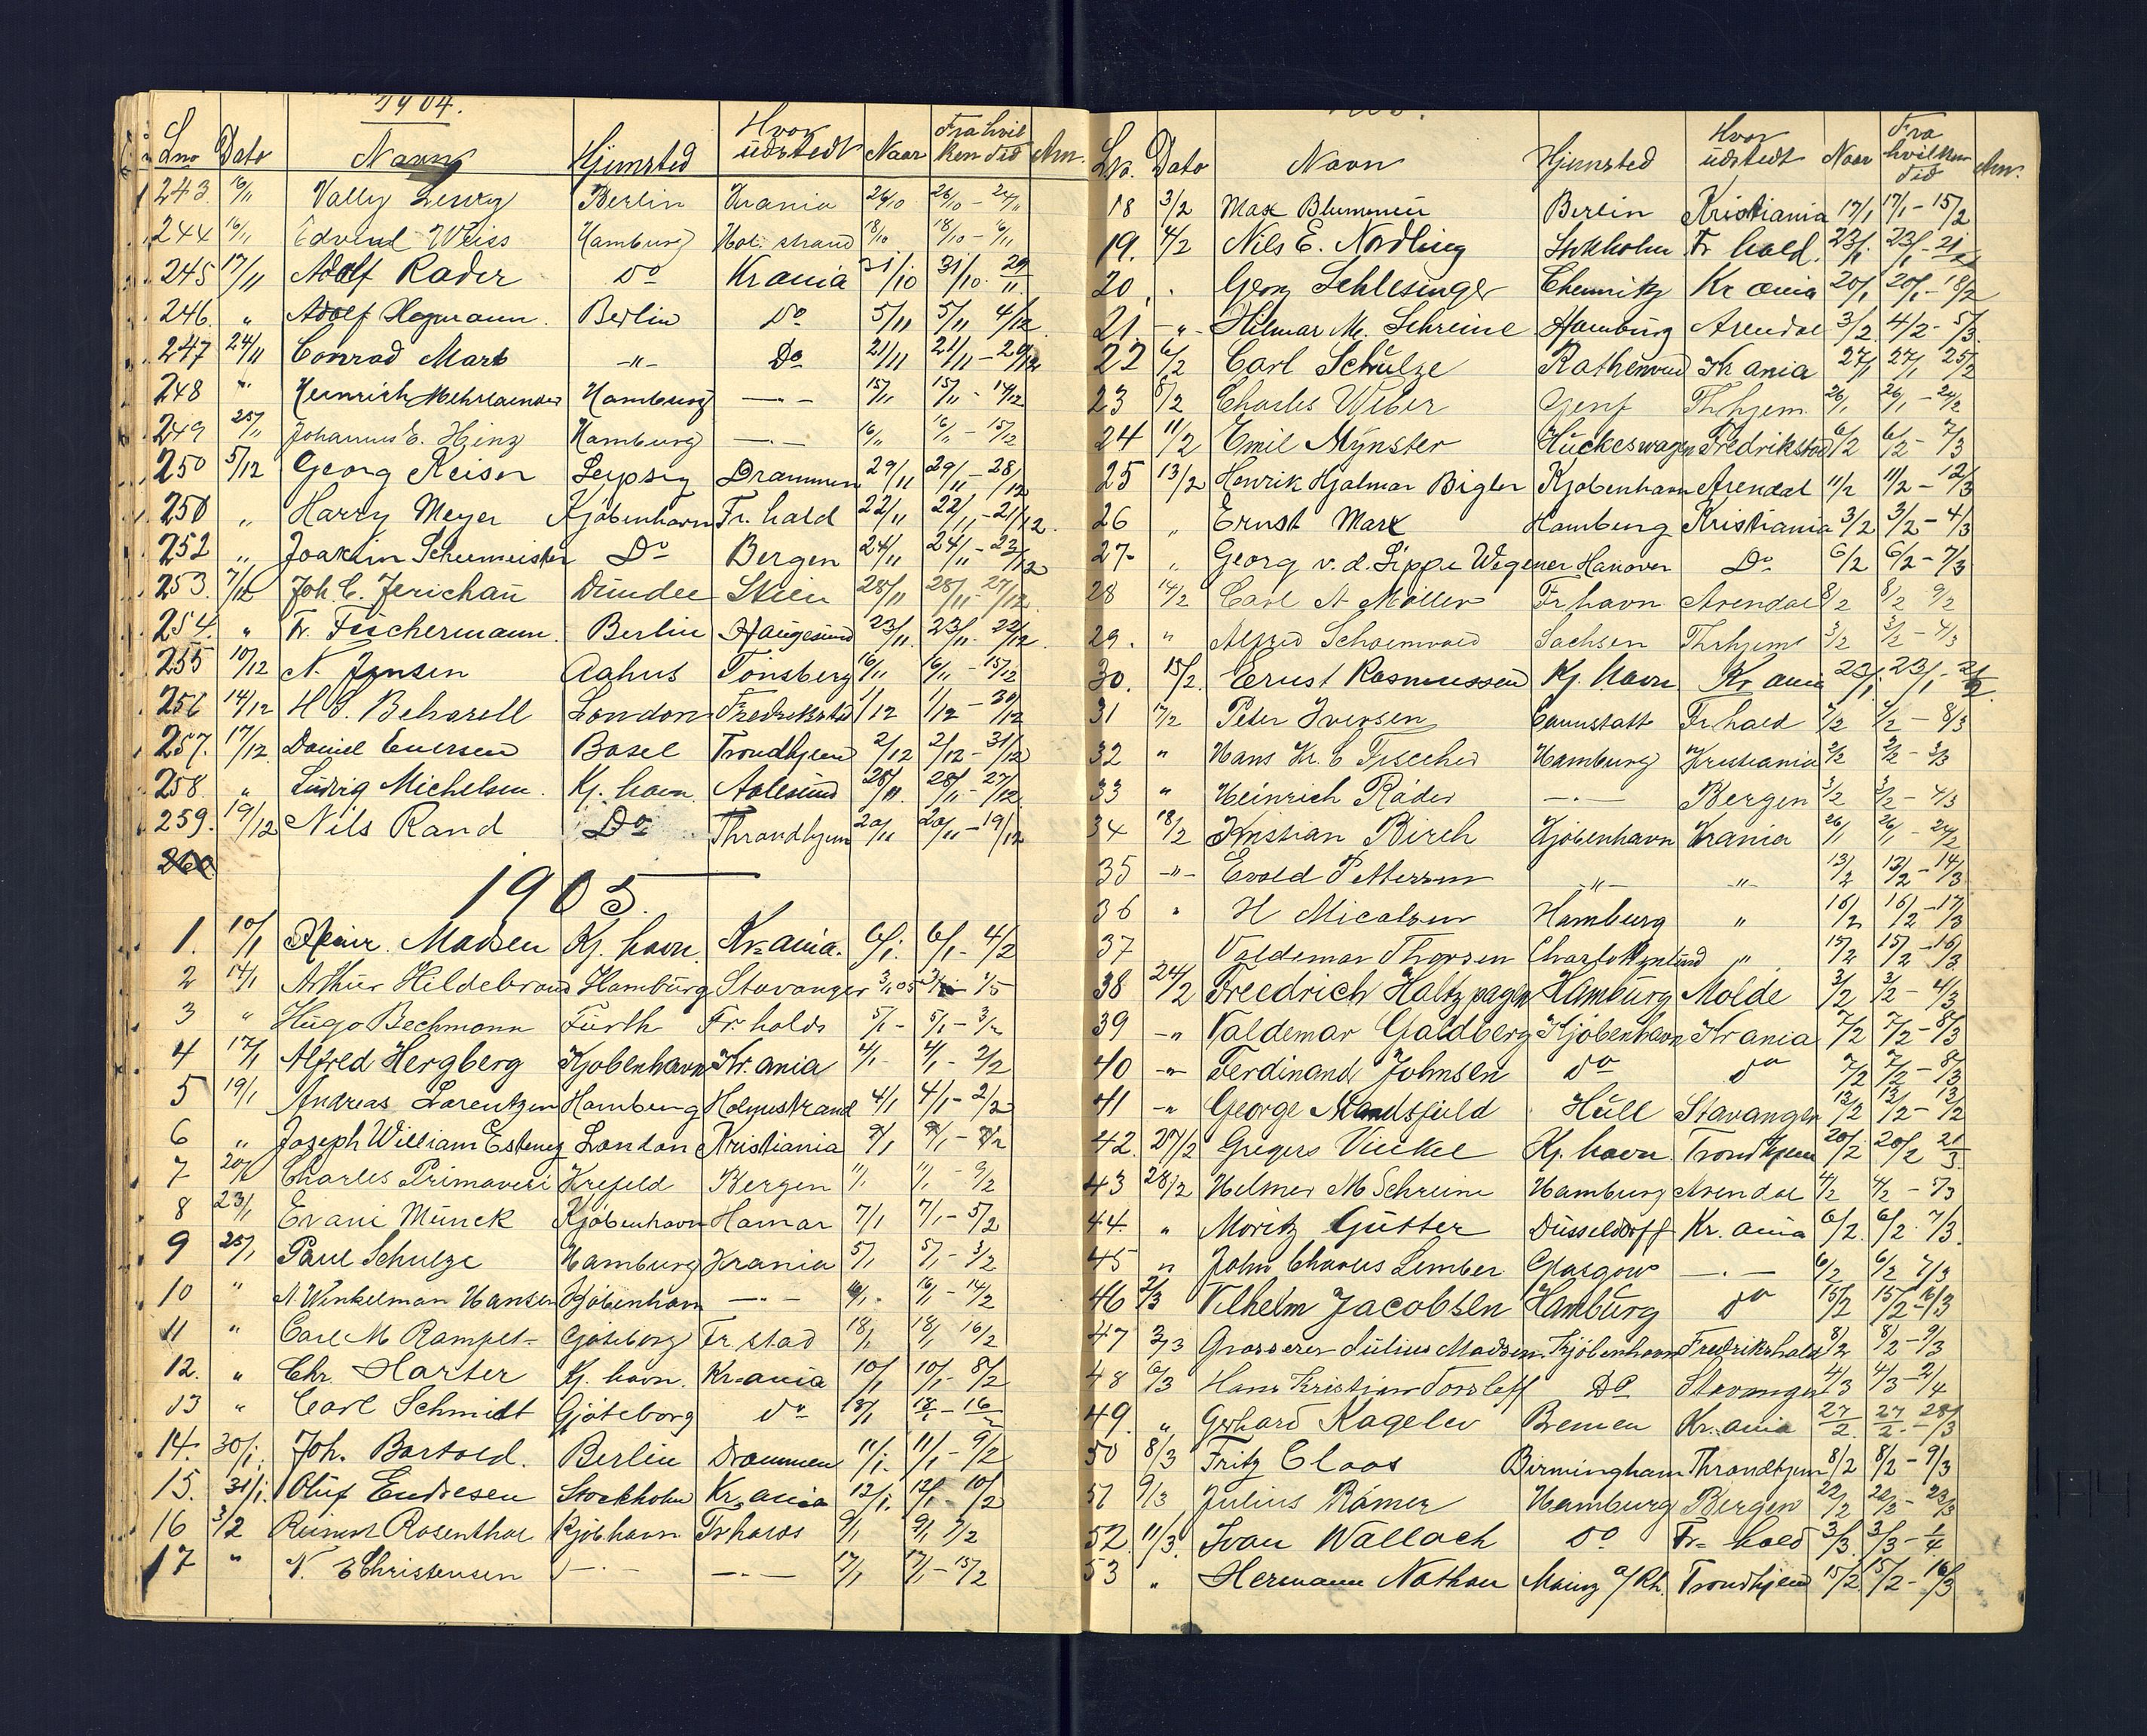 1904.
Lno Dato Navn Hjemsted Hvor udstedt Naar Fra hvilken tid Anm.
243. 16/11 Vally Lewy Berlin Krania 26/10 26/10 - 24/11
244 16/11 Edvind Weiss Hamburg Hol. strand 18/10 18/10 - 16/11
245 17/11 Adolf Rader Do Krania 31/10 31/10 - 29/11
246. " Adolf Hagmann. Berlin Do 5/11 5/11 4/12
247 24/11 Conrad Mark -"- Do 21/11 21/11 - 20/12
248 " Heinrich Mehrlaender Hamburg -"- 15/11 15/11 - 14/12
249 25/11 Johannes E. Hinz Hamburg -"- 16/11 16/11 - 15/12
250 5/12 Georg Reiser Leipsig Drammen 29/11 29/11 - 28/12
251 " Harry Meyer Kjøbenhavn Fr. hald 22/11 22/11 - 21/12.
252 " Joakim Scheemeister Do Bergen 24/11 24/11 - 23/12
253. 7/12 Joh. C. Jerichau Dundee Skien 28/11 28/11 - 27/12
254. " Fr. Fischermann. Berlin Haugesund 23/11 23/11 - 22/12
255 10/12 N. Jensen Aahus Tönsberg 16/11 16/11 - 15/12
256 14/12 H. S. Beharell London Fredrikstad 1/12 1/12 - 30/12
257. 17/12 Daniel Enersen Basel Trondhjem 2/12 2/12 - 31/12
258. " Ludvig Michelsen. Kj. havn Aalesund 28/11. 28/11 - 27/12
259. 19/12 Nils Rand Do Throndhjem 20/11 20/11 - 19/12
260
1905
1. 10/1 Madsen Kj. havn. Kr=ania. 6/1. 6/1 - 4/2
2 14/1 Arthur Hildebrand Hamburg Stavanger 3/1 05 3/1 - 1/5
3 " Hugo Bechmann Fürth Fr. halds 5/1 - 5/1 - 3/2
4 17/1 Alfred Hergberg Kjøbenhavn Kr. ania 4/1 - 4/1 - 2/2
5 19/1 Andreas Lorentzen Hamburg Holmestrand 4/1 4/1 - 2/2
6 " Joseph William London Kristiania 9/1 9/1 - 7/2
7 20/1 Charles Primavesi Krefeld Bergen 11/1 11/1 - 9/2
8 23/1 Evani Munck Kjøbenhavn Hamar 7/1 7/1 - 5/2
9 25/1 Paul Schulze Hamburg Krania 5/1 5/1 - 3/2
10 " N. Winkelman Hansen Kjøbenhavn -"- 16/1. 16/1 - 14/2
11 " Carl M Rampet- Gjøteborg Fr. stad 18/1 18/1 16/2
12. " Chr. Harter Kj. havn. Kr=ania 10/1 10/1 - 8/2
13 " Carl Schmidt Gjøteborg do 18/1 18/1 - 16/2
14. 30/1. Joh. Bartold. Berlin Drammen 11/1. 11/1 - 9/2
15. 31/1. Oluf Endresen Stockholm Kr=ania 12/1. 12/1 - 10/2
16 3/2 Reinert Rosenthal Kjöbhavn Fr halds 9/1 9/1 7/2
17 " N. E Christensen -"- -"- 17/1 17/1 - 15/2
Lno. Dato Navn Hjemsted Hvor udstedt Naar Fra hvilken tid Anm.
18 3/2 Max Blummen Berlin Kristiania 17/1 17/1 - 15/2
19. 4/2 Nils E. Nordling Stokholm Fr hald. 23/1. 23/1 - 21/2
20 " Georg Schlesinger Chemnitz Kr ania 20/1 20/1 - 18/2
21. -"- Hilmar M. Schreine Hamburg Arendal 3/2 4/2 - 5/3.
22 6/2 Carl Schulze Rathenow Kr ania 27/1 27/1 25/2
23 8/2 Charles Weber Genf Thrhjem 26/1 26/1 - 24/2
24 11/2 Emil Mÿnster Huckeswagen Fredrikstad 6/2 6/2 - 7/3
25 13/2 Henrik Hjalmar Bigler Kjøbenhavn Arendal 11/2 11/2 - 12/3
26 " Ernst Marx Hamburg Kristiania 3/2 3/2 - 4/3
27- " Georg v. d. Lippe Wegener Hanover Do 6/2 6/2 - 7/3
28 14/2 Carl A Møller Fr havn Arendal 8/2 8/2 9/2
29. " Alfred Schoenwald Sachsen Thrhjem 3/2 3/2 - 4/3
30. 15/2. Ernst Rasmussen Kj. havn Kr ania 23/1. 23/1 - 21/2
31 17/2 Peter Iversen Cannstatt Fr hald 7/2 7/2 - 8/3
32 " Hans Kr. C Fischer Hamburg Kristiania 2/2 2/2 - 3/3
33 " Heinrich Räder -"- Bergen 3/2 3/2 - 4/3
34 18/2 Kristian Birch Kjøbenhavn Krania 26/1 26/1 - 24/2
35 -"- Evald Pettersen -"- -"- 13/2 13/2 - 14/3
36 " H Micalsen Hamburg " 16/2 16/2 - 17/3
37 Valdemar Thorsen Charlottenlund " 15/2 15/2 - 16/3
38 24/2 Freedrich Haltzpagen Hamburg Molde 3/2 3/2 - 4/3
39 -" Valdemar Galdberg Kjøbenhavn Krania 7/2 7/2 - 8/3
40 -" Ferdinand Johnsen do do 7/2 7/2 - 8/3
41 -" George Mandsfield Hull Stavanger 13/2 13/2 - 13/12
42. 27/2 Gregers Vinkel Kj. havn Trondhjem 20/2 20/2 21/3.
43 28/2 Helmer M Schreine Hamburg Arendal 4/2 4/2 - 5/3
44. " Moritz Gutter Düsseldorff Kr. ania 6/2. 6/2. 7/3.
45 " John Charles Lember Glasgow -"- 6/2 6/2 7/3
46 2/3 Vilhelm Jacobsen Hamburg do 15/2 15/2 - 16/3
47 3/3 Grosserer Julius Madsen Kjøbenhavn Fredrikshald 8/2 8/2 - 9/3
48 6/3 Hans Kristian Torsleff Do Stavanger 4/3 4/3 - 2/4
49. " Gerhard Kagelev Bremen Kr. ania 27/2. 27/2. - 28/3
50 8/3 Fritz Cloos Birmingham Throndhjem 8/2 8/2 - 9/3
51 9/3 Julius Rámer Hamburg Bergen 22/2 22/2 - 23/3
52. 11/3. Ivan Wallach Do Fr= hald 3/3. 3/3 - 1/4
53 " Hermann Nathan Mainz a/Rh. Trondhjem 15/2 15/2 - 16/3